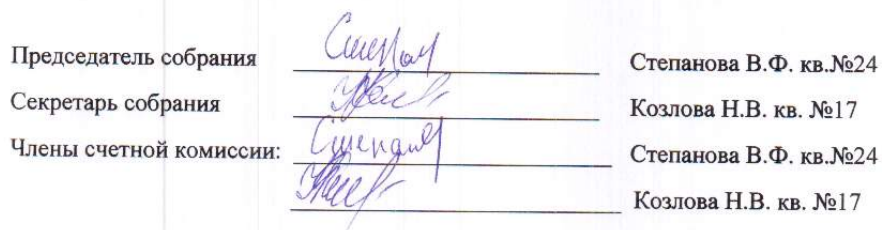 Председатель собрания Степанова В.Ф. кв.№24
Секретарь собрания Козлова Н.В. кв. №17
Члены счетной комиссии: Степанова В.Ф. кв.№24
Козлова Н.В. кв. №17